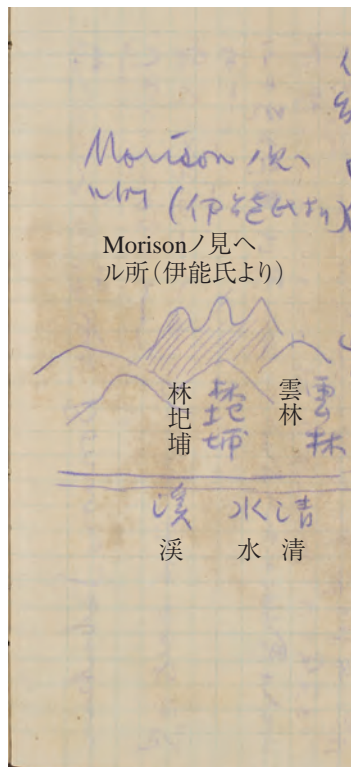 Morison ノ見ヘ
ル所 (伊能氏より)
Morisonノ見ヘ
ル所（伊能氏より）
雲林
雲林
林圯埔
林圯埔
渓 水 清
渓 水 清